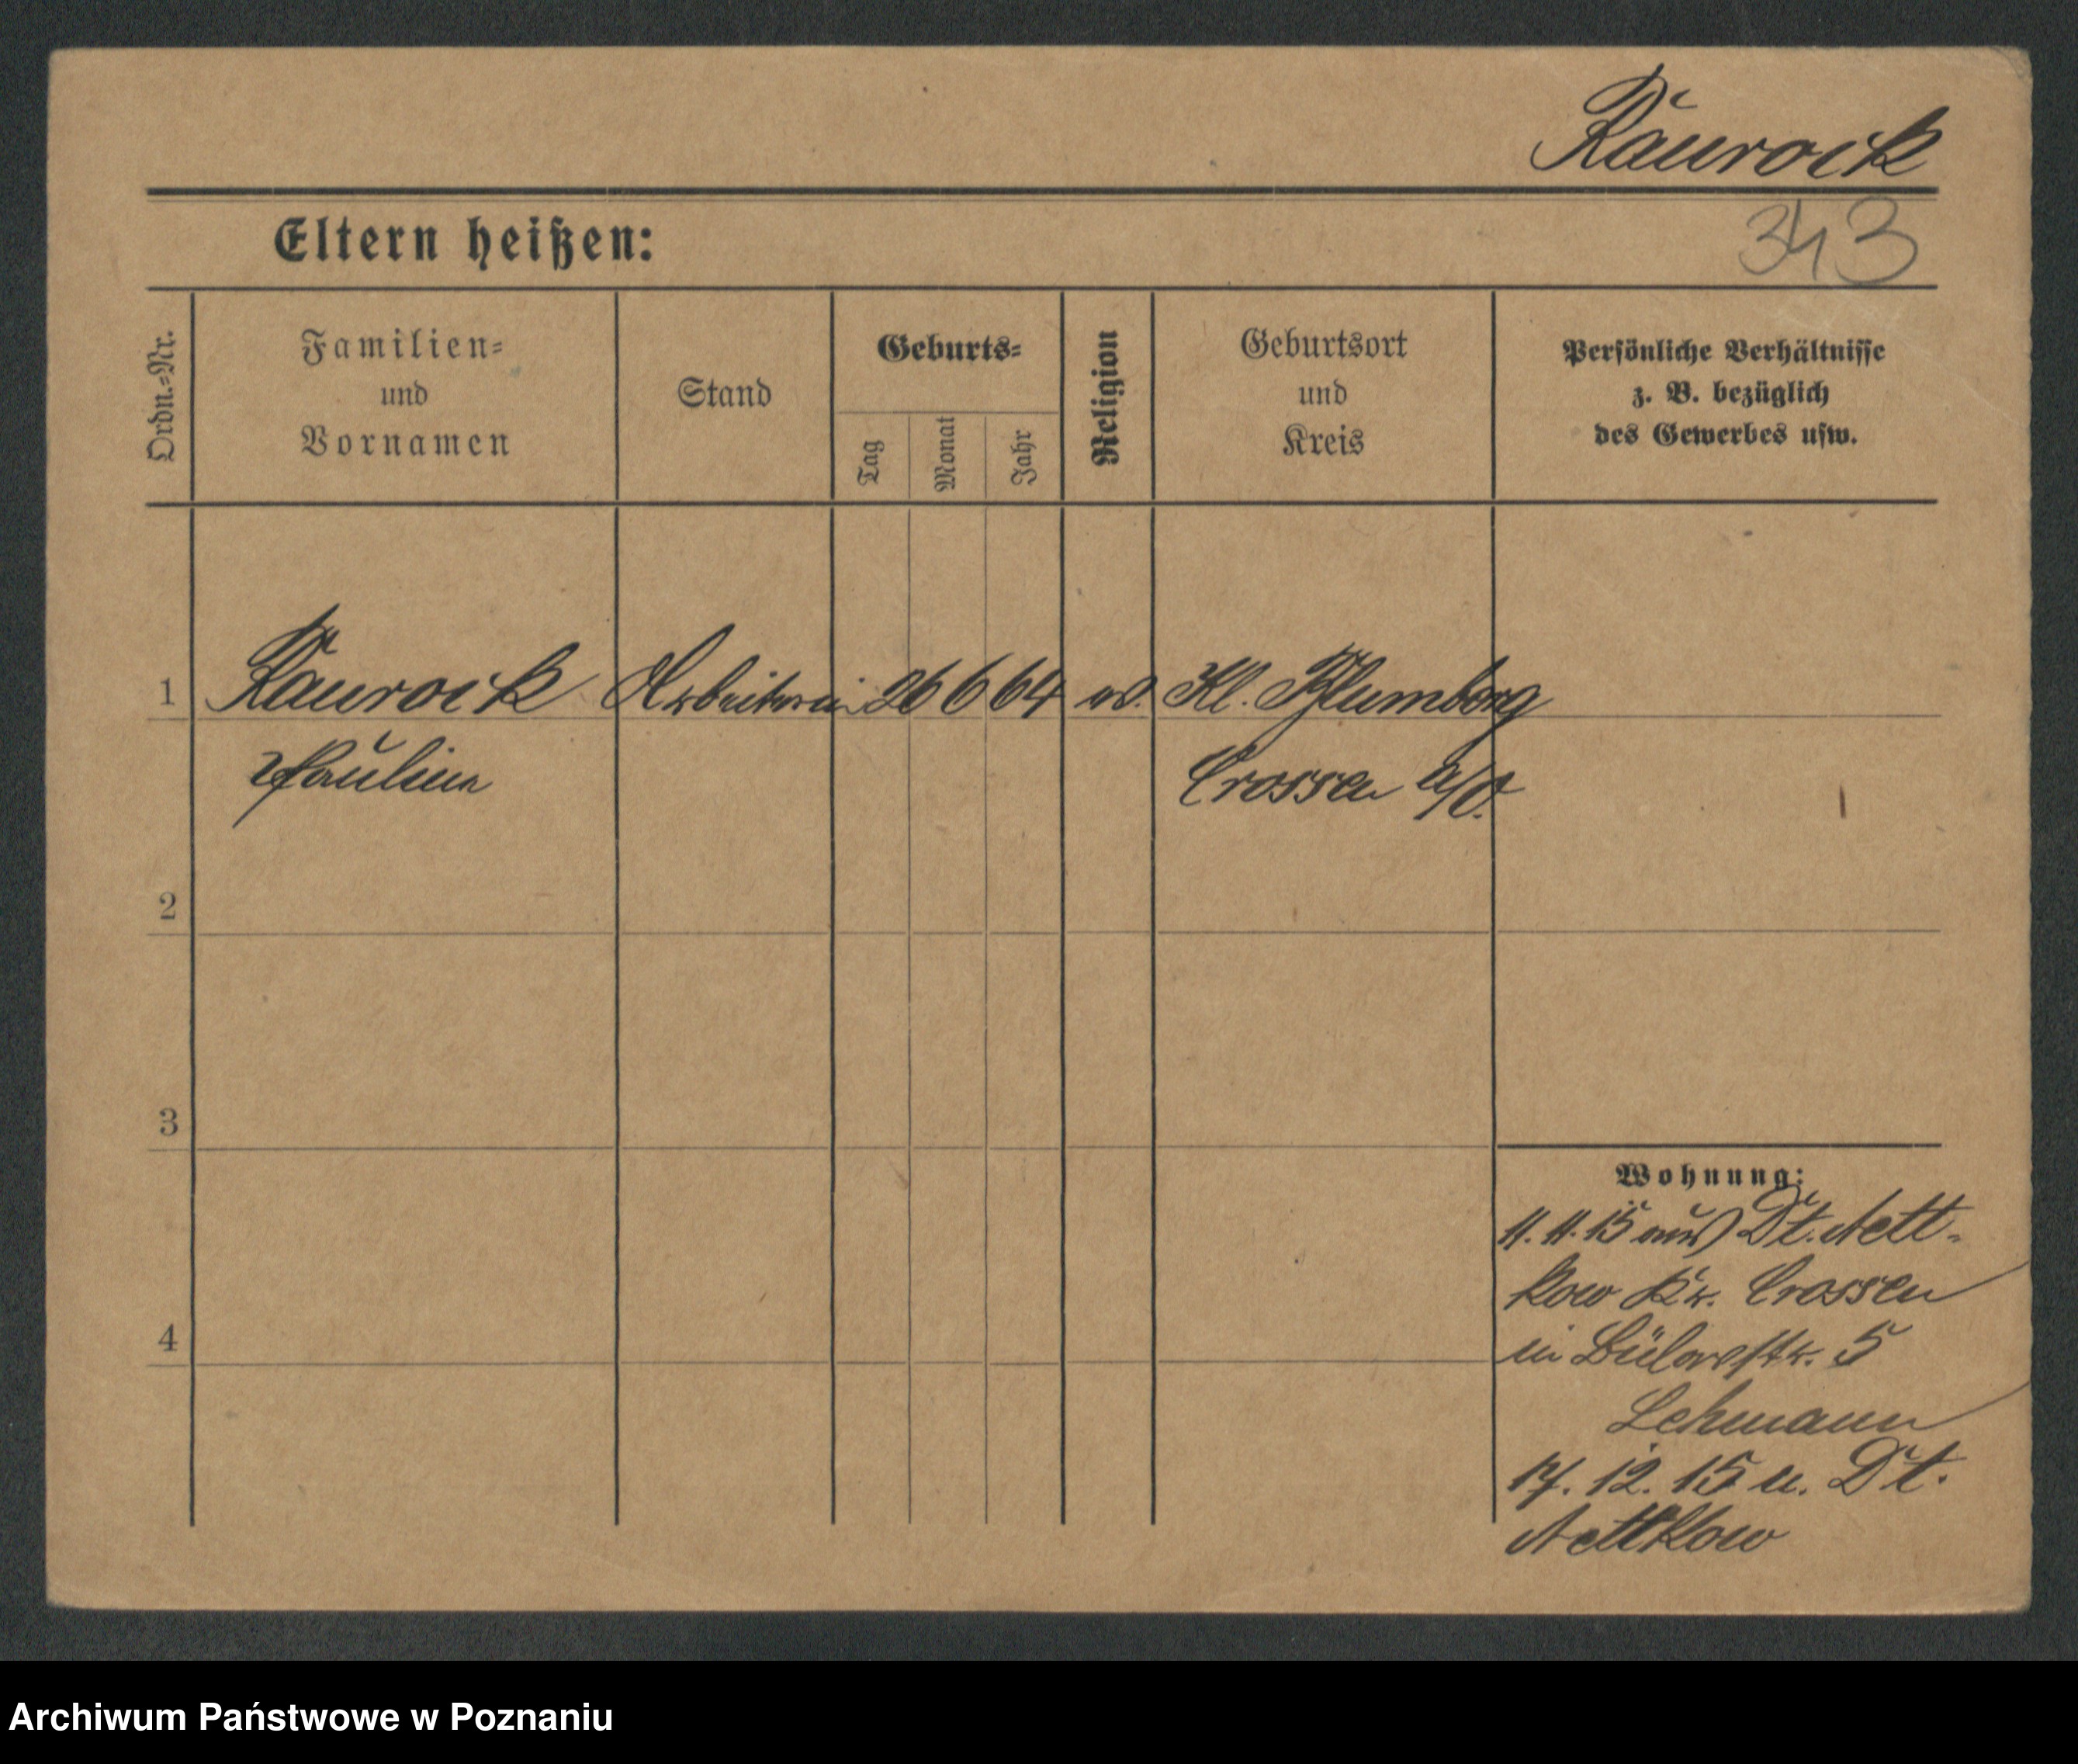 Kaurock
343
Eltern heißen:
Ordn.-Nr.
Familien-
und
Vornamen
Stand
Geburts-
Tag
Monat
Jahr
Religion
Geburtsort
und
Kreis
Persönliche Verhältnisse
z. B. bezüglich
des Gewerbes usw.
1 Kaurock Arbeiterin 26 6 64 ev. Kl. Blumberg
Pauline Crossen a/O.
2
3
Wohnung:
11. 11. 15 aus Dt. Nett-
kow Kr. Crossen
4
in Bülowstr. 5
Lehmann
17. 12. 15 n. Dt.
Nettkow
Archiwum Państwowe w Poznaniu